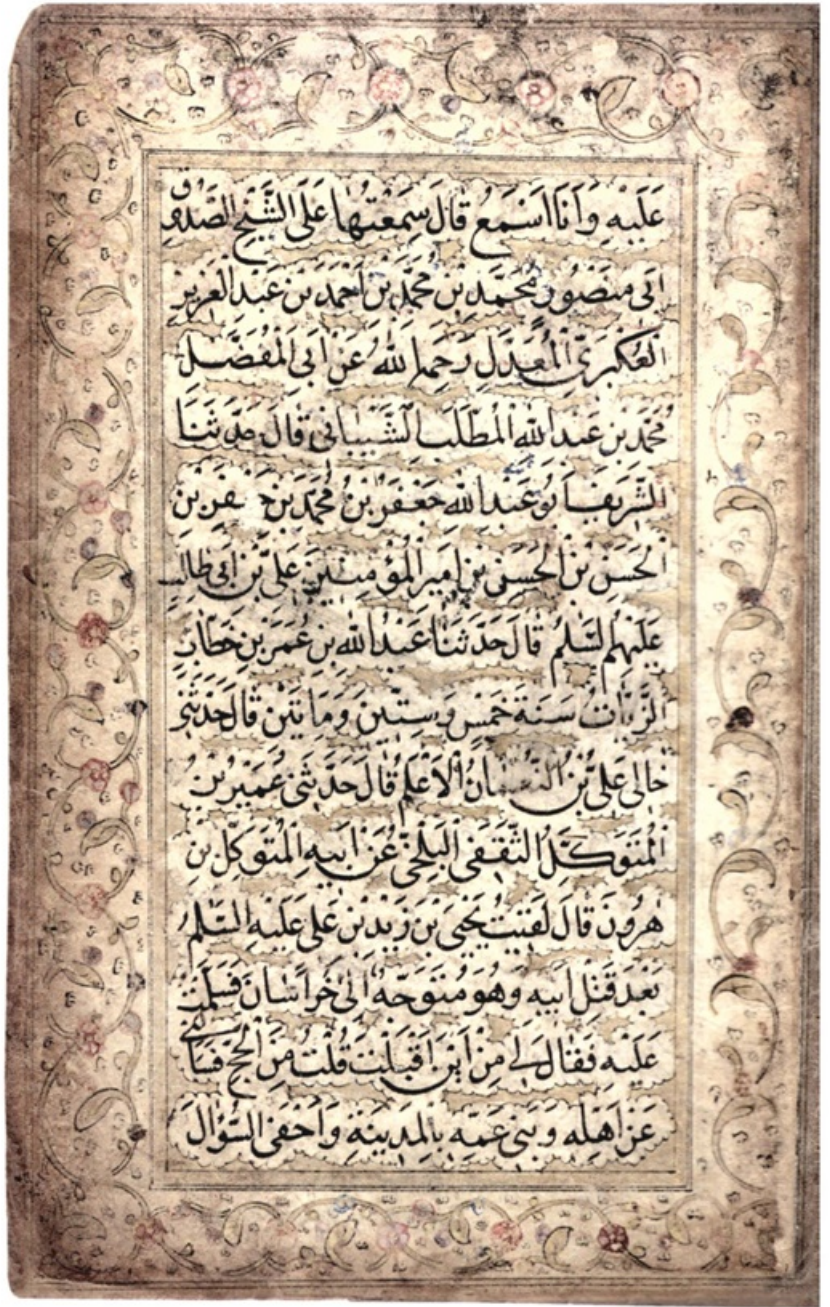 عَلَيْهِ وَاَنَا اَسْمَعُ قَالَ سَمِعْتُهَا عَلَى الشَّيْخِ الصَّدُوقِ
اَبى مَنْصُورِ مُحَمَّدِ بْنِ مُحَمَّدِ بْنِ اَحْمَدَ بْنِ عَبْدِ الْعَزِيزِ
الْعُكْبَرِيِّ الْمُعَدَّلِ رَحِمَهُ اللهُ عَنْ اَبِى الْمُفَضَّلِ
مُحَمَّدِ بْنِ عَبْدِ اللهِ الْمُطَّلِبِ الشَّيْبَانِى قَالَ حَدَّثَنَا
الشَّرِيفُ اَبُو عَبْدِ اللهِ جَعْفَرُ بْنُ مُحَمَّدِ بْنِ جَعْفَرِ بْنِ
الْحَسَنِ بْنِ الْحَسَنِ بْنِ اَمِيرِ الْمُؤْمِنِينَ عَلِىِّ بْنِ اَبى طَالِبٍ
عَلَيْهِمُ السَّلٰمُ قَالَ حَدَّثَنَا عَبْدُ اللهِ بْنِ عُمَرَ بْنِ خَطَّابِ
الزَّيَّاتُ سَنَةَ خَمْسٍ وَسِتّينَ وَمَاتَيْنِ قَالَ حَدَّثَنى
خَالى عَلِىُّ بْنُ النُّعْمَانُ الْاَعْلَمُ قَالَ حَدَّثَنى عُمَيْرُ بْنُ
الْمُتَوَكِّلِ الثَّقَفِى الْبَلْخِىُّ عَنْ اَبيهِ الْمُتَوَكِّلِ بْنِ
هٰرُونَ قَالَ لَقيتُ يَحْيَى بْنَ زَيْدِ بْنِ عَلِىٍّ عَلَيْهِ السَّلٰمُ
بَعْدَ قَتْلِ اَبيهِ وَهُوَ مُتَوَجِّهٌ اِلٰى خُرَاسَانَ فَسَلَّمْتُ
عَلَيْهِ فَقَالَ لى مِنْ اَيْنَ اَقْبَلْتَ قُلْتُ مِنَ الْحَجِّ فَسَاَلَنى
عَنْ اَهْلِهِ وَبَنى عَمِّهِ بِالْمَدينَةِ وَاَحْفَى السُّؤَالَ